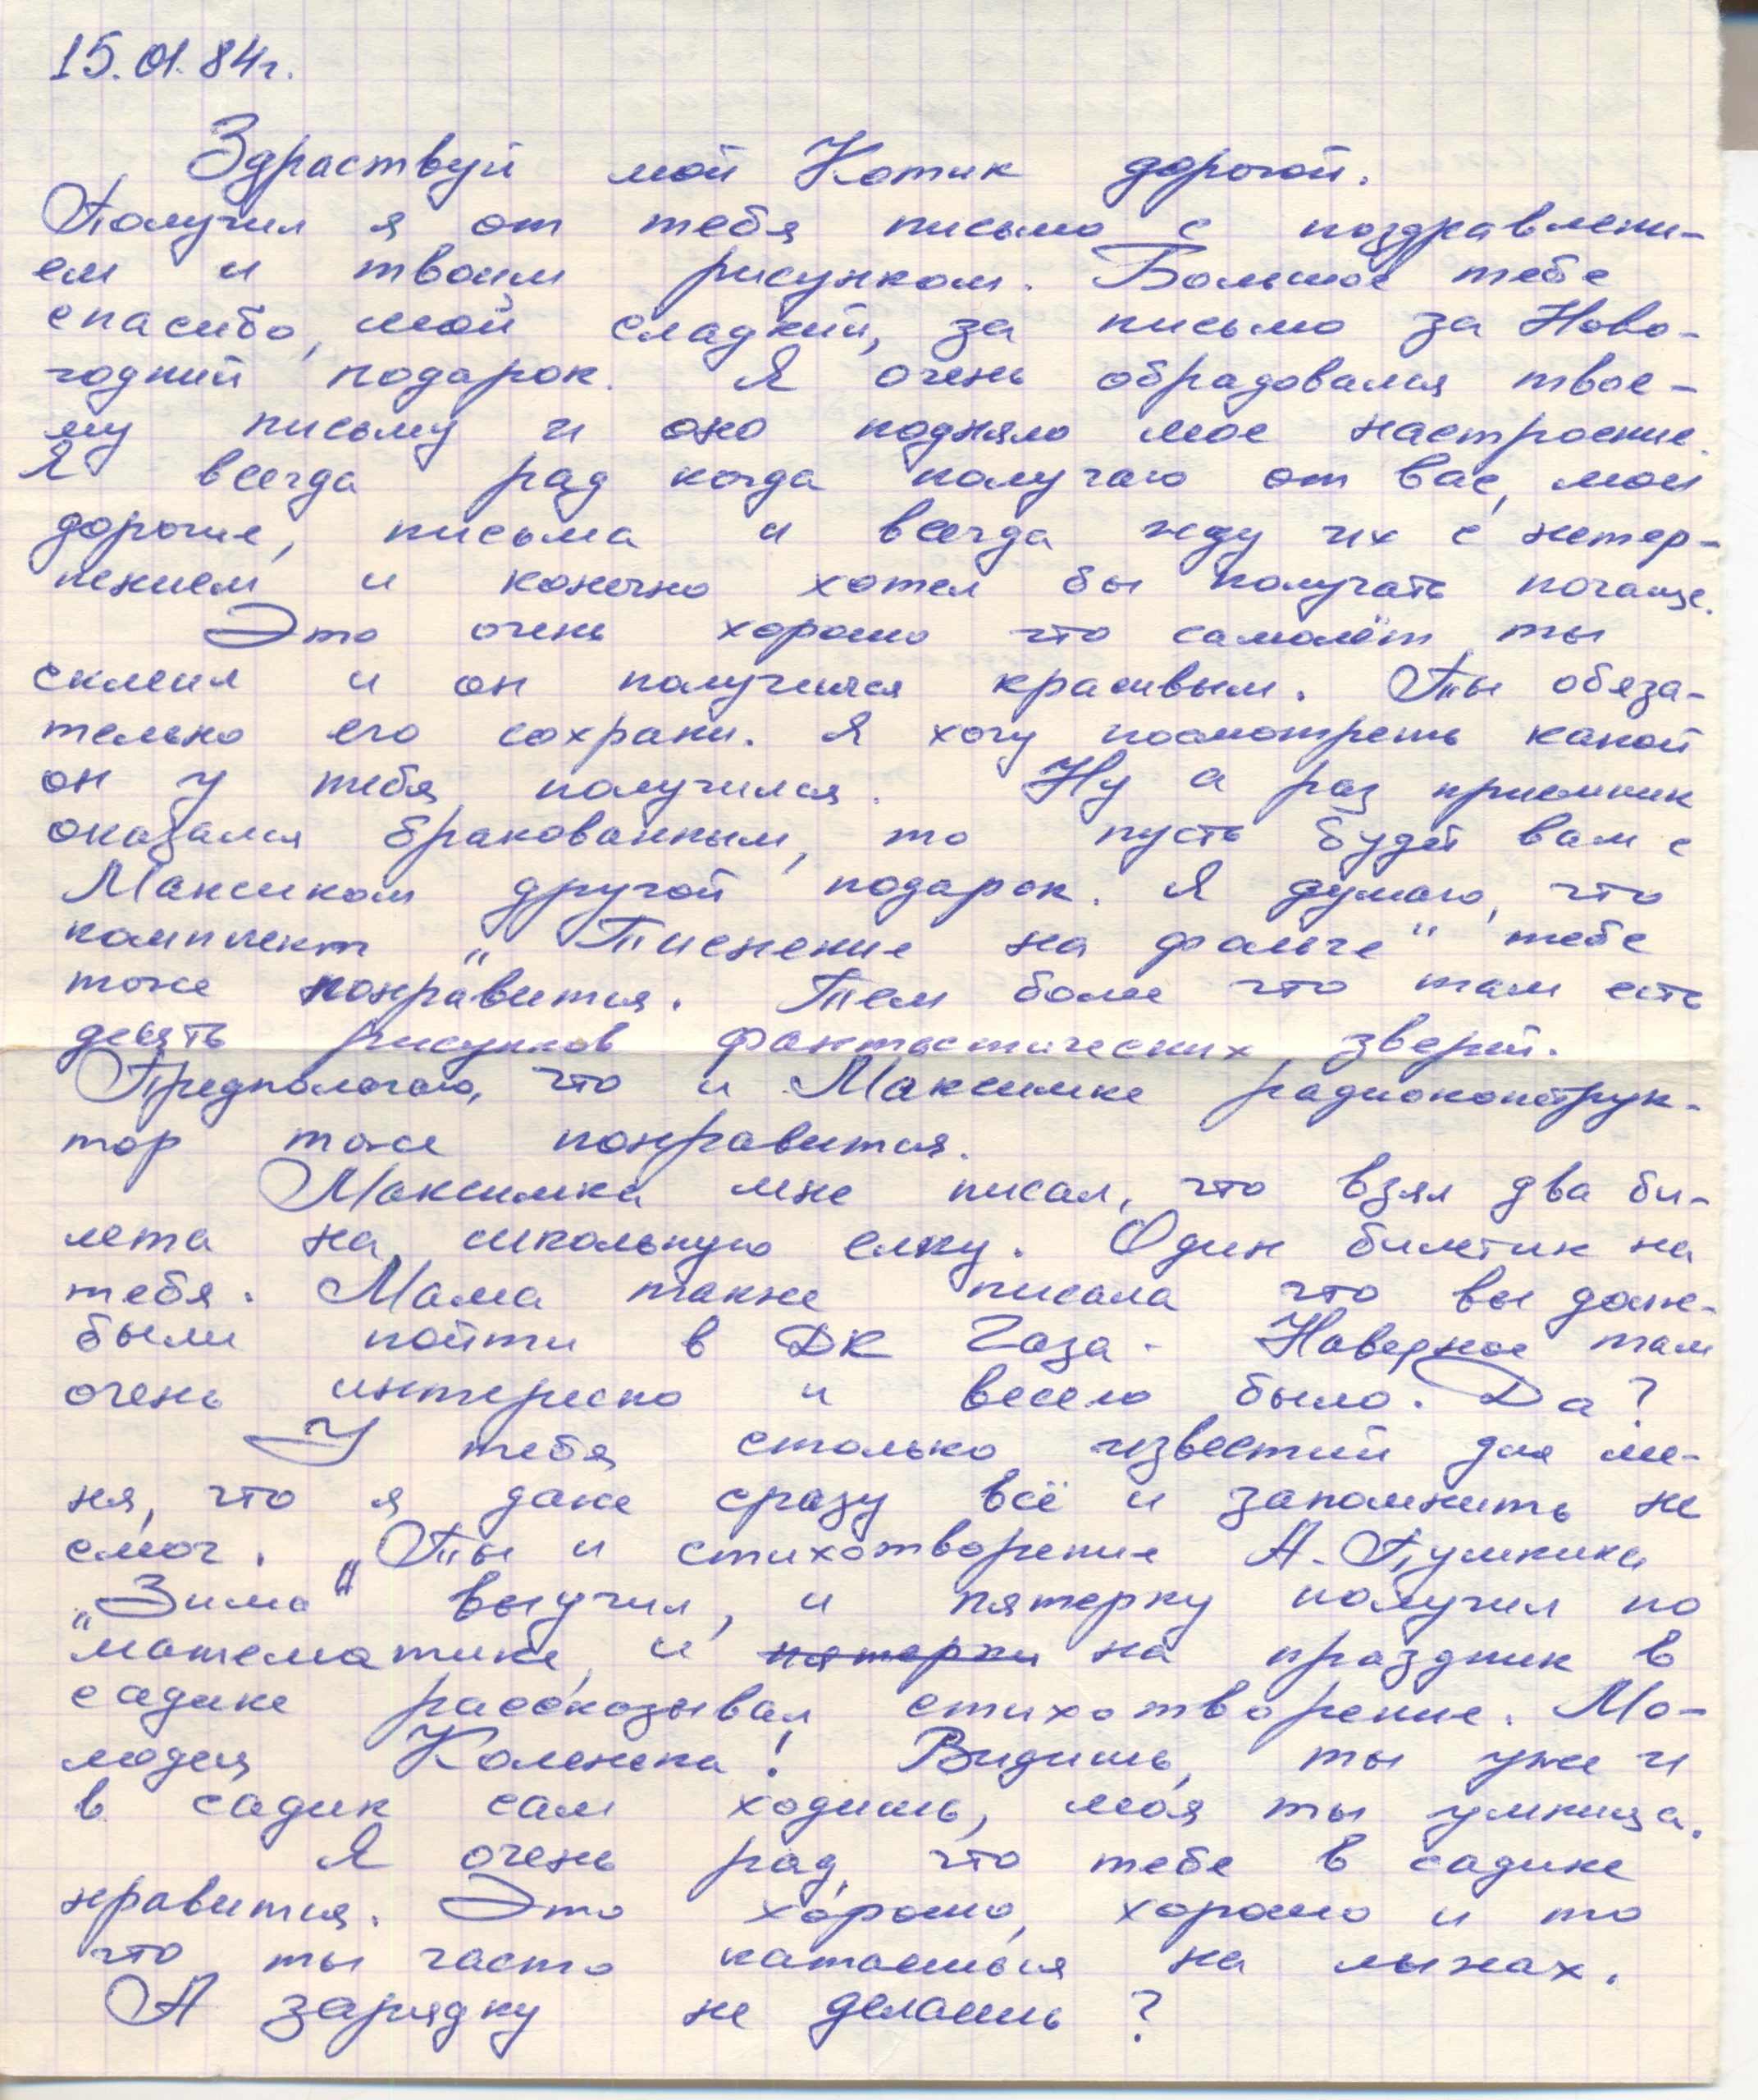 15.01.84г.
Здраствуй мой Котик дорогой.
Получил я от тебя письмо с поздравлени-
ем и твоим рисунком. Большое тебе
спасибо, мой сладкий, за письмо за Ново-
годний подарок. Я очень обрадовался твое-
му письму и оно подняло мое настроение.
Я всегда рад когда получаю от вас, мои
дорогие, письма и всегда жду их с нетер-
пением и конечно хотел бы получать почаще.
Это очень хорошо что самолёт ты
склеил и он получился красивым. Ты обяза-
тельно его сохрани. Я хочу посмотреть какой
он у тебя получился. Ну а раз приемник
оказался бракованным, то пусть будет вам с
Максиком другой подарок. Я думаю, что
комплект „Тиснение на фольге" тебе
тоже понравится. Тем более что там есть
девять рисунков фантастических зверей.
Предпологаю, что и Максимке радиоконструк-
тор тоже понравится.
Максимка мне писал, что взял два би-
лета на школьную елку. Один билетик на
тебя. Мама также писала что вы долж-
были пойти в ДК Газа. Наверное там
очень интересно и весело было. Да?
У тебя столько известий для ме-
ня, что я даже сразу всё и запомнить не
смог. „Ты и стихотворение А. Пушкина
„Зима" выучил, и пятерку получил по
математике, и пятерки на праздник в
садике рассказывал стихотворение. Мо-
лодец Коленька! Видишь, ты уже и
в садик сам ходишь, моя ты умница.
Я очень рад, что тебе в садике
нравится. Это хорошо, хорошо и то
что ты часто катаешься на лыжах.
А зарядку не делаешь?